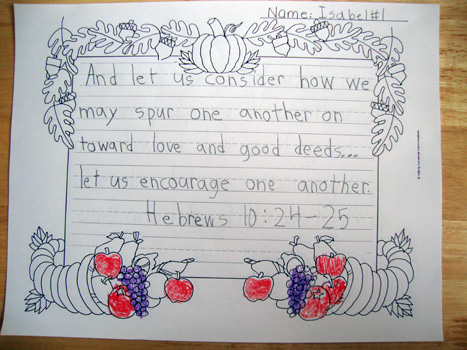 Name: Isabel#1
And let us consider how we
may spur one another on
toward love and good deeds...
let us encourage one another.
Hebrews 10:24-25